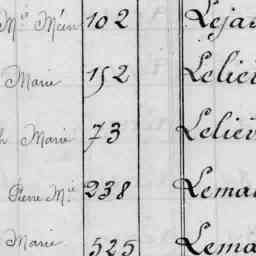 Mie Méen 102 Lejau
Marie 152 Leliev
h Marie 73 Leliev
Pierre Mie 238 Lema
Marie 525 Lema